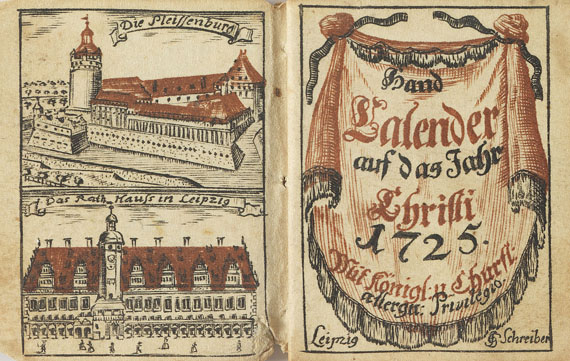 Die Pleissenburg
Das Rath Hauss in Leipzig
Hand
Calender
auf das Jahr
Christi
1725.
Mit Königl. u. Churfl.
allergn. Privilegio.
Leipzig Schreiber